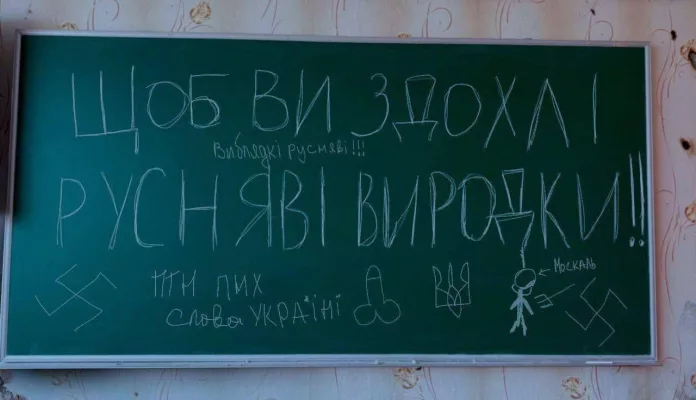 ЩОБ ВИ ЗДОХЛІ
Виблядкі русняві!!!
РУСНЯВІ ВИРОДКИ!!
ПТН ПИХ
слова УКРАЇНІ
МОСКАЛЬ